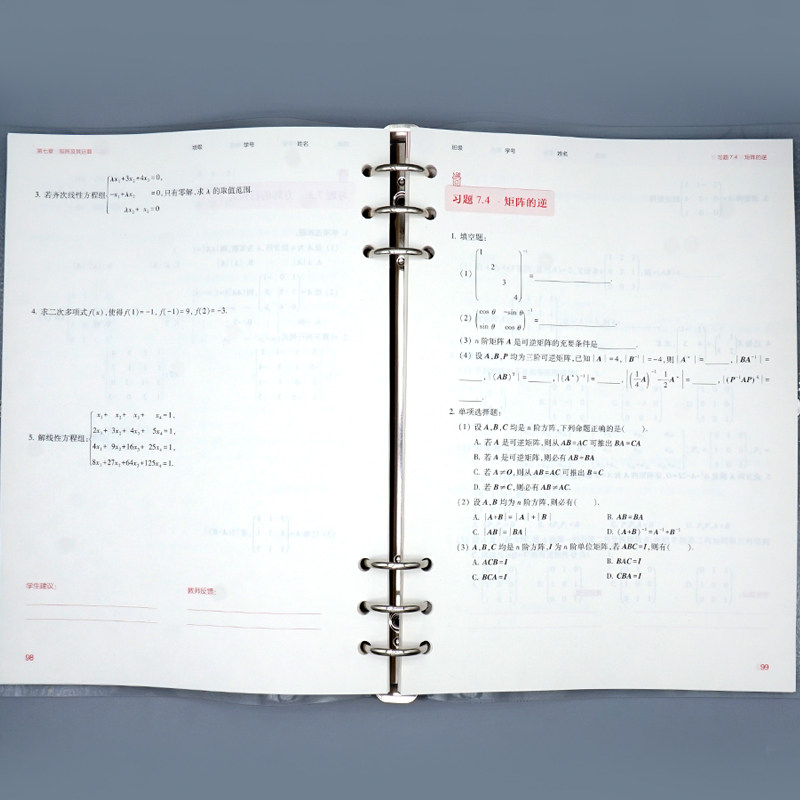 第七章 矩阵及其运算 班级 学号 姓名
3. 若齐次线性方程组{λx₁+3x₂+4x₃=0, -x₁+λx₂ =0, λx₂+ x₃=0 只有零解,求 λ 的取值范围.
4. 求二次多项式 f(x),使得 f(1)=-1, f(-1)=9, f(2)=-3.
5. 解线性方程组:
x₁+ x₂+ x₃+ x₄=1,
2x₁+ 3x₂+ 4x₃+ 5x₄=1,
4x₁+ 9x₂+16x₃+ 25x₄=1,
8x₁+27x₂+64x₃+125x₄=1.
学生建议:
教师反馈:
98
班级 学号 姓名 习题7.4 · 矩阵的逆
习题 7.4 · 矩阵的逆
1. 填空题:
(1) (1 2 3 4)⁻¹=
(2) (cos θ -sin θ
sin θ cos θ)⁻¹=
(3) n 阶矩阵 A 是可逆矩阵的充要条件是
(4) 设 A,B,P 均为三阶可逆矩阵,已知|A|=4,|B⁻¹|=-4,则|A*|= ,|BA⁻¹|=
,|(AB)ᵀ|= ,|(A*)⁻¹|= ,|(1/4 A)⁻¹-1/2 A*|= ,|(P⁻¹AP)ᵏ|=
.
2. 单项选择题:
(1) 设 A,B,C 均是 n 阶方阵,下列命题正确的是( ).
A. 若 A 是可逆矩阵,则从 AB=AC 可推出 BA=CA
B. 若 A 是可逆矩阵,则必有 AB=BA
C. 若 A≠O,则从 AB=AC 可推出 B=C
D. 若 B≠C,则必有 AB≠AC.
(2) 设 A,B 均为 n 阶方阵,则必有( ).
A. |A+B|=|A|+|B| B. AB=BA
C. |AB|=|BA| D. (A+B)⁻¹=A⁻¹+B⁻¹
(3) A,B,C 均是 n 阶方阵,I 为 n 阶单位矩阵,若 ABC=I,则有( ).
A. ACB=I B. BAC=I
C. BCA=I D. CBA=I
99